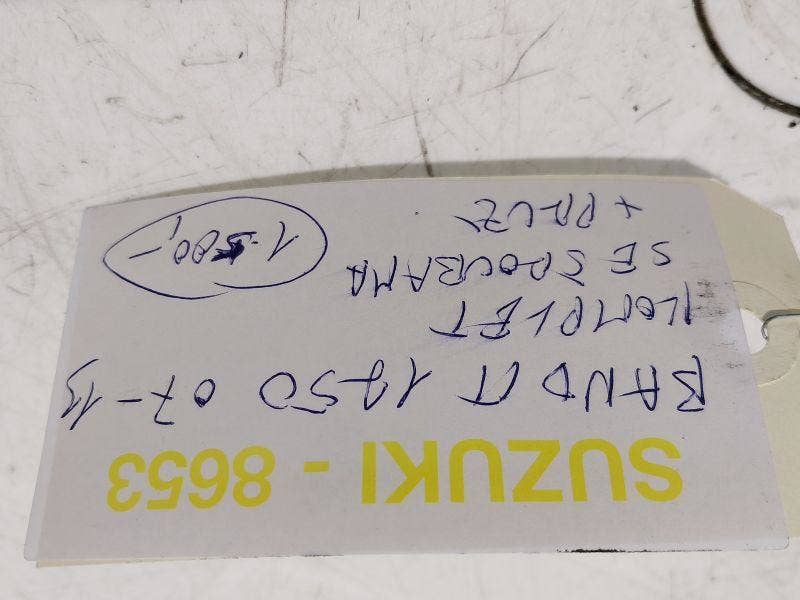 SUZUKI - 8653
BANDIT 1250 07-13
KOMPLET
SE ŠROUBAMA
+ PRUŽ
1.500,-